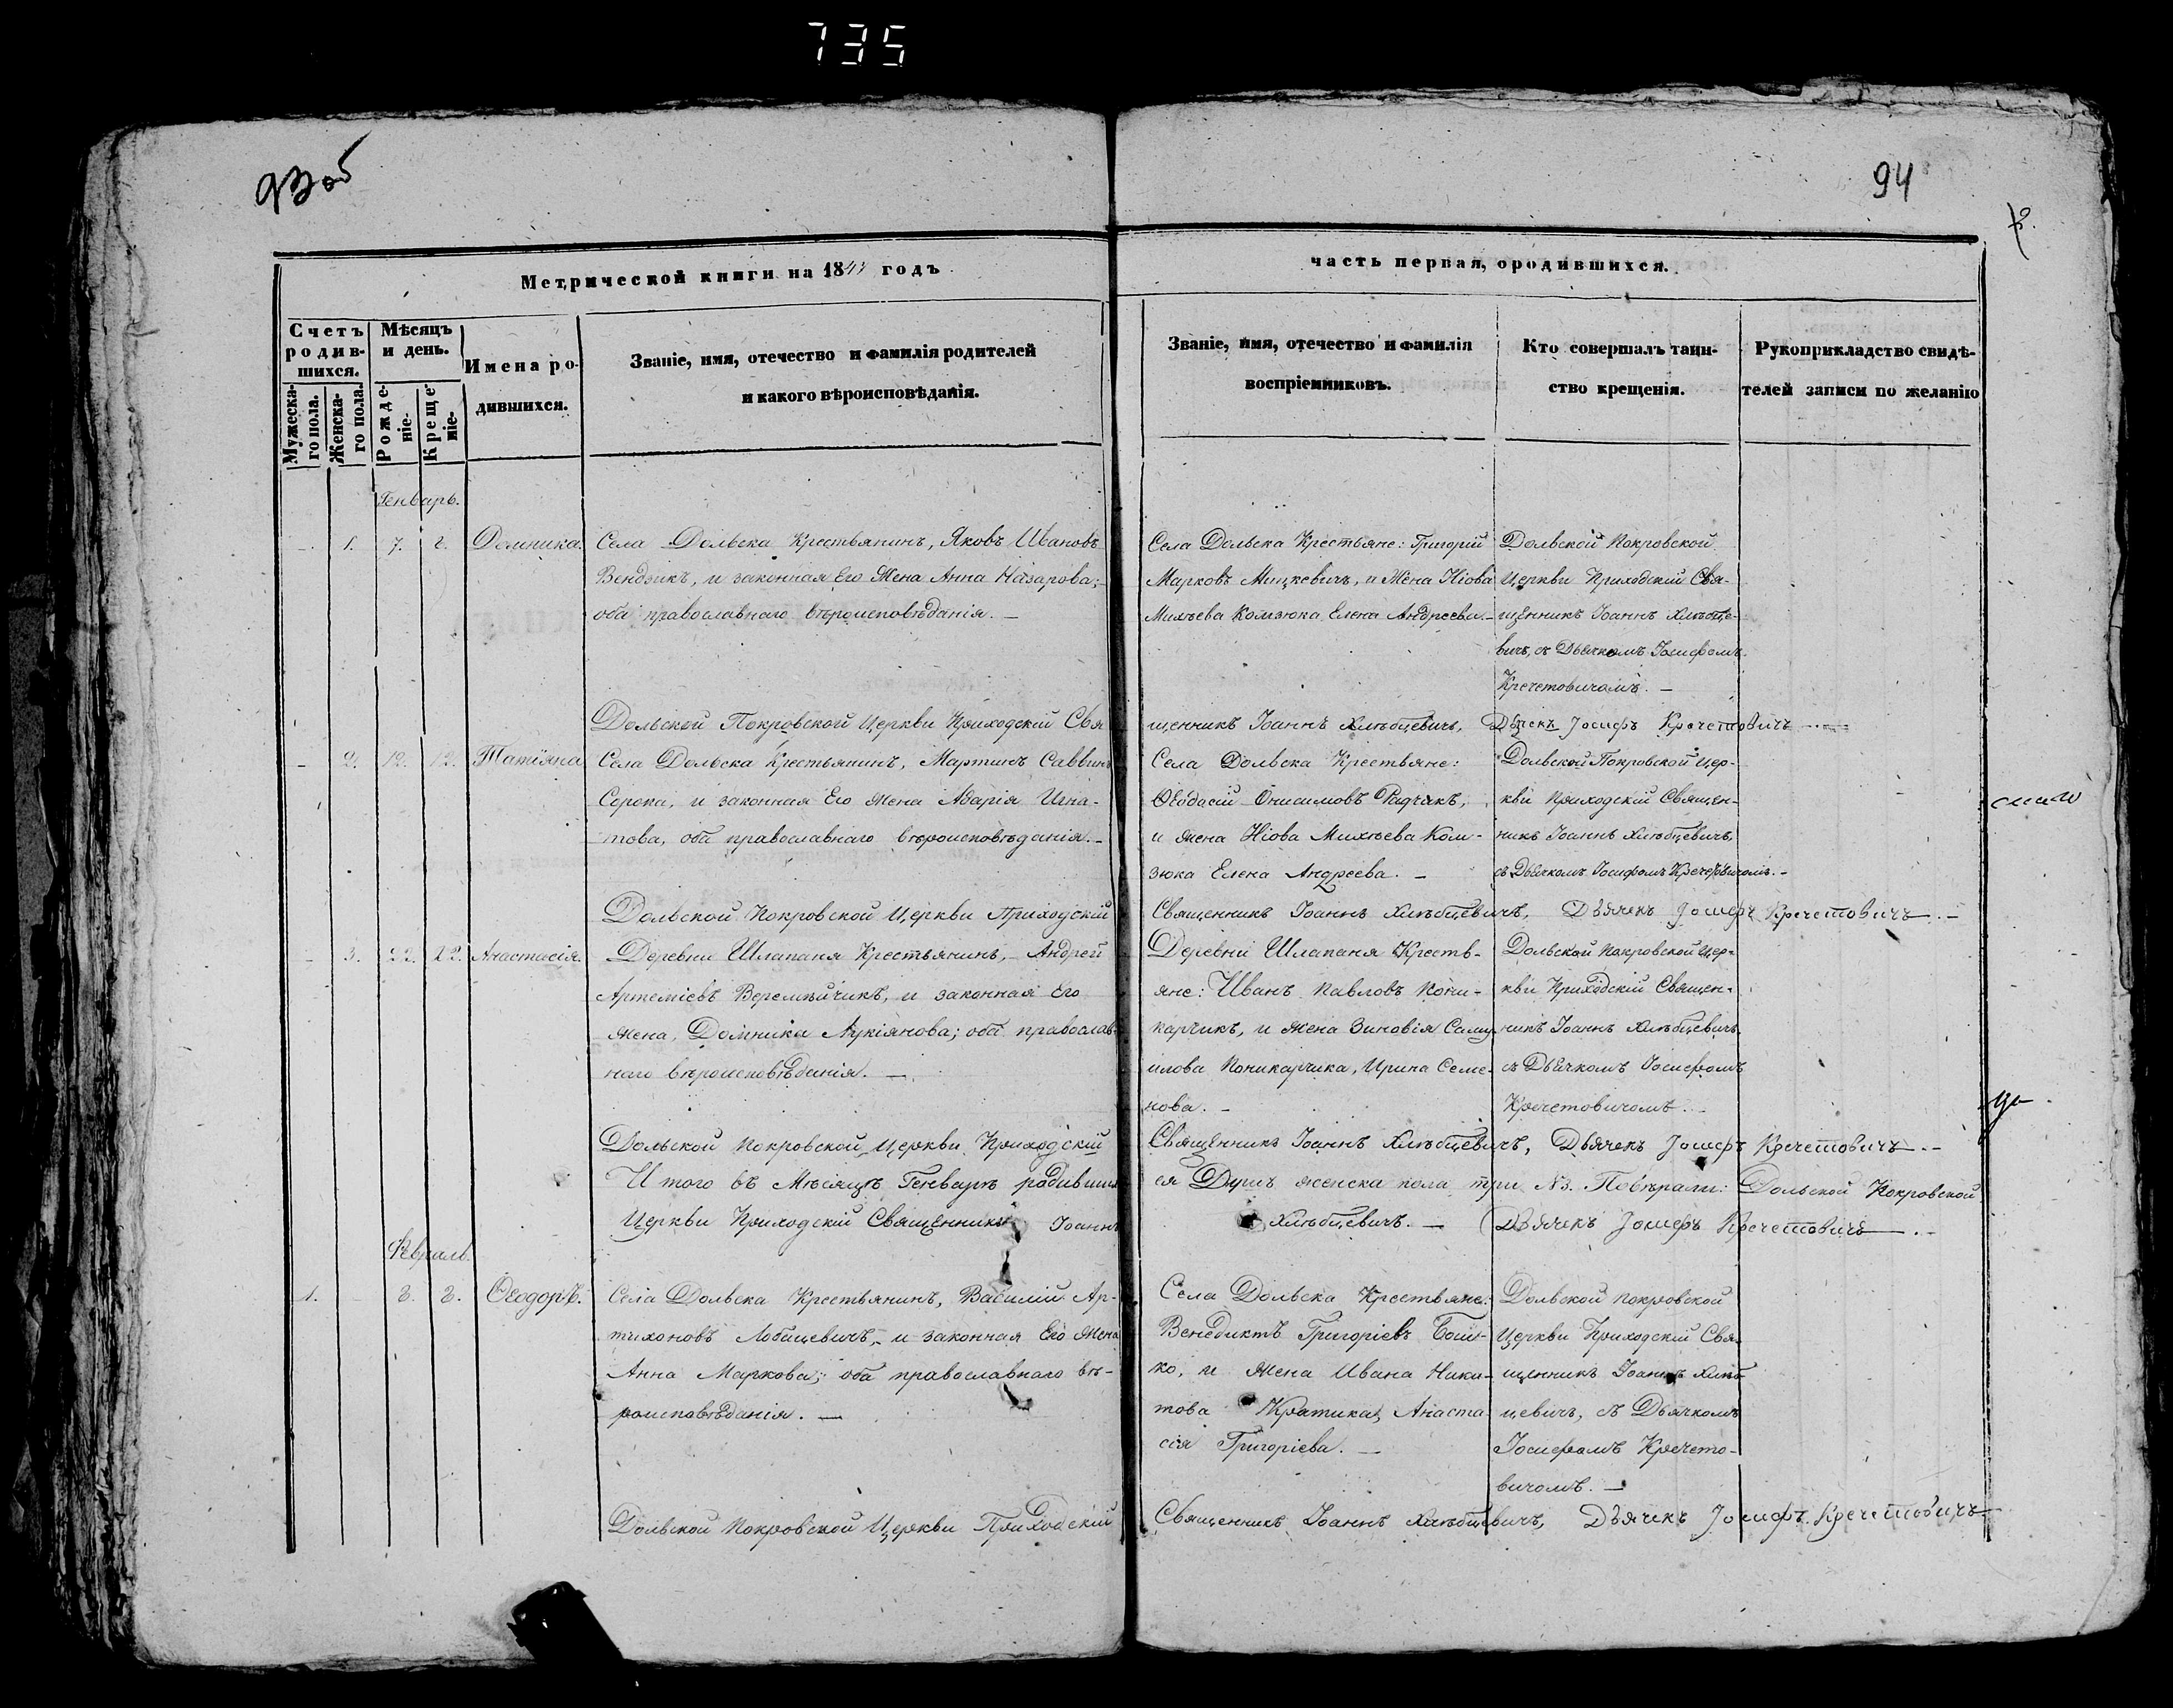 735
93об
94
Метрической книги на 1843 годъ
часть первая, ородившихся.
Счетъ родив-шихся.
Мужеска-го пола.
Женска-го пола.
Мѣсяцъ и день.
Рожде-ніе.
Креще-ніе.
Имена ро-
дившихся.
Званіе, имя, отечество и фамилія родителей
и какого вѣроисповѣданія.
Званіе, имя, отечество и фамилія
воспріемниковъ.
Кто совершалъ таин-
ство крещенія.
Рукоприкладство свидѣ-
телей записи по желанію
Генварь.
– 1. 7. 8. Домника.
Села Дольска Крестьянинъ, Яковъ Ивановъ
Вендзикъ, и законная Его Жена Анна Назарова;
оба православнаго вѣроисповѣданія. –
Села Дольска Крестьяне: Григорій
Марковъ Мицкевичъ, и Жена Ніова
Михѣева Комзюка Елена Андреева. –
Дольской Покровской
Церкви Приходскій Свя-
щенникъ Іоаннъ Хлѣбце-
вичъ, съ Дьячкомъ Іосифомъ
Кречетовичомъ. –
Дольской Покровской Церкви Приходскій Свя
щенникъ Іоаннъ Хлѣбцевичъ, Дьячекъ Іосифъ Кречетовичъ
– 2. 12. 12. Татіяна
Села Дольска Крестьянинъ, Мартинъ Саввинъ
Сорока, и законная Его жена Агарія Игна-
това, оба православнаго вѣроисповѣданія. –
Села Дольска Крестьяне:
Ѳеодосій Онисимовъ Радчикъ,
и жена Ніова Михѣева Ком-
зюка Елена Андреева. –
Дольской Покровской Цер-
кви Приходскій Священ-
никъ Іоаннъ Хлѣбцевичъ,
съ Дьячкомъ Іосифомъ Кречетовичомъ. –
Дольской Покровской Церкви Приходскій
Священникъ Іоаннъ Хлѣбцевичъ, Дьячекъ Іосифъ Кречетовичъ. –
– 3. 22. 22. Анастасія.
Деревни Шлапаня Крестьянинъ, Андрей
Артеміевъ Веремѣйчикъ, и законная Его
жена, Домника Лукіянова; оба православ-
наго вѣроисповѣданія. –
Деревни Шлапаня Кресть-
яне: Иванъ Павловъ Пони-
карчикъ, и жена Зиновія Саму-
илова Поникарчика, Ирина Семе-
нова. –
Дольской Покровской Цер-
кви Приходскій Священ-
никъ Іоаннъ Хлѣбцевичъ,
съ Дьячкомъ Іосифомъ
Кречетовичомъ. –
Дольской Покровской Церкви Приходскій
Священникъ Іоаннъ Хлѣбцевичъ, Дьячекъ Іосифъ Кречетовичъ. –
И того въ Мѣсяцѣ Генварѣ родивши
ся Душъ женска пола три №3. Повѣряли: Дольской Покровской
Церкви Приходскій Священникъ Іоаннъ
Хлѣбцевичъ. – Дьячекъ Іосифъ Кречетовичъ. –
Февраль.
1. – 8. 8. Ѳеодоръ.
Села Дольска Крестьянинъ, Василій Ар-
тихоновъ Лобицевичъ, и законная Его Жена
Анна Маркова; оба православнаго вѣ-
роисповѣданія. –
Села Дольска Крестьяне:
Венедиктъ Григоріевъ Бош-
ко, и жена Ивана Ники-
това Кратика, Анаста
сія Григоріева. –
Дольской Покровской
Церкви Приходскій Свя-
щенникъ Іоаннъ Хлѣб-
цевичъ, съ Дьячкомъ
Іосифомъ Кречето-
вичомъ. –
Дольской Покровской Церкви Приходскій
Священникъ Іоаннъ Хлѣбцевичъ, Дьячекъ Іосифъ Кречетовичъ